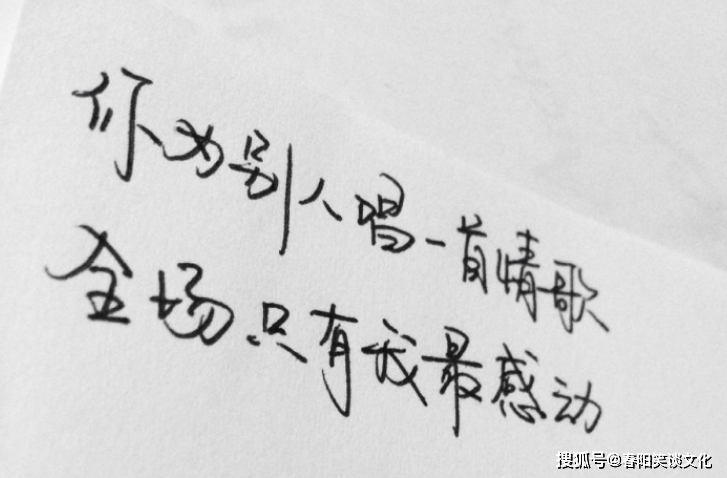 你为别人唱一首情歌
全场只有我最感动
搜狐号@春阳笑谈文化